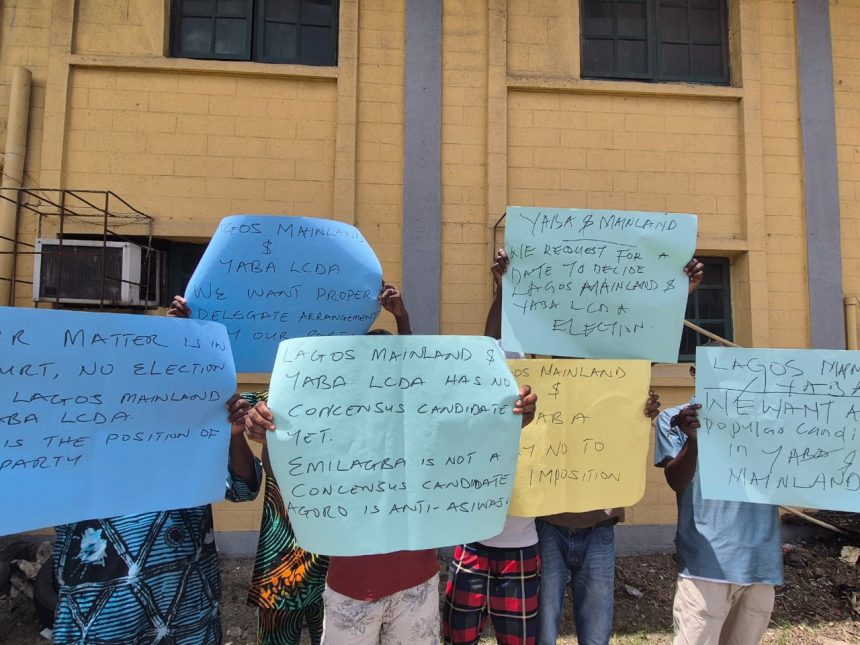 GOS MAINLAND
$
YABA LCDA
WE WANT PROPER
DELEGATE ARRANGEMENT
OUR
YABA $ MAINLAND
WE REQUEST FOR A
DATE TO DECIDE
LAGOS MAINLAND $
YABA LCDA
ELECTION.
R MATTER IS IN
URT, NO ELECTION
LAGOS MAINLAND
ABA LCDA.
IS THE POSITION OF
PARTY
LAGOS MAINLAND $
YABA LCDA HAS NO
CONCENSUS CANDIDATE
YET.
EMILAGBA IS NOT A
CONCENSUS CANDIDATE
AGORO IS ANTI-ASIWAJU
OS MAINLAND
$
ABA
Y NO TO
IMPOSITION
LAGOS MAIN
YABA
WE WANT A
Popular Candi
in YABA $
MAINLAND